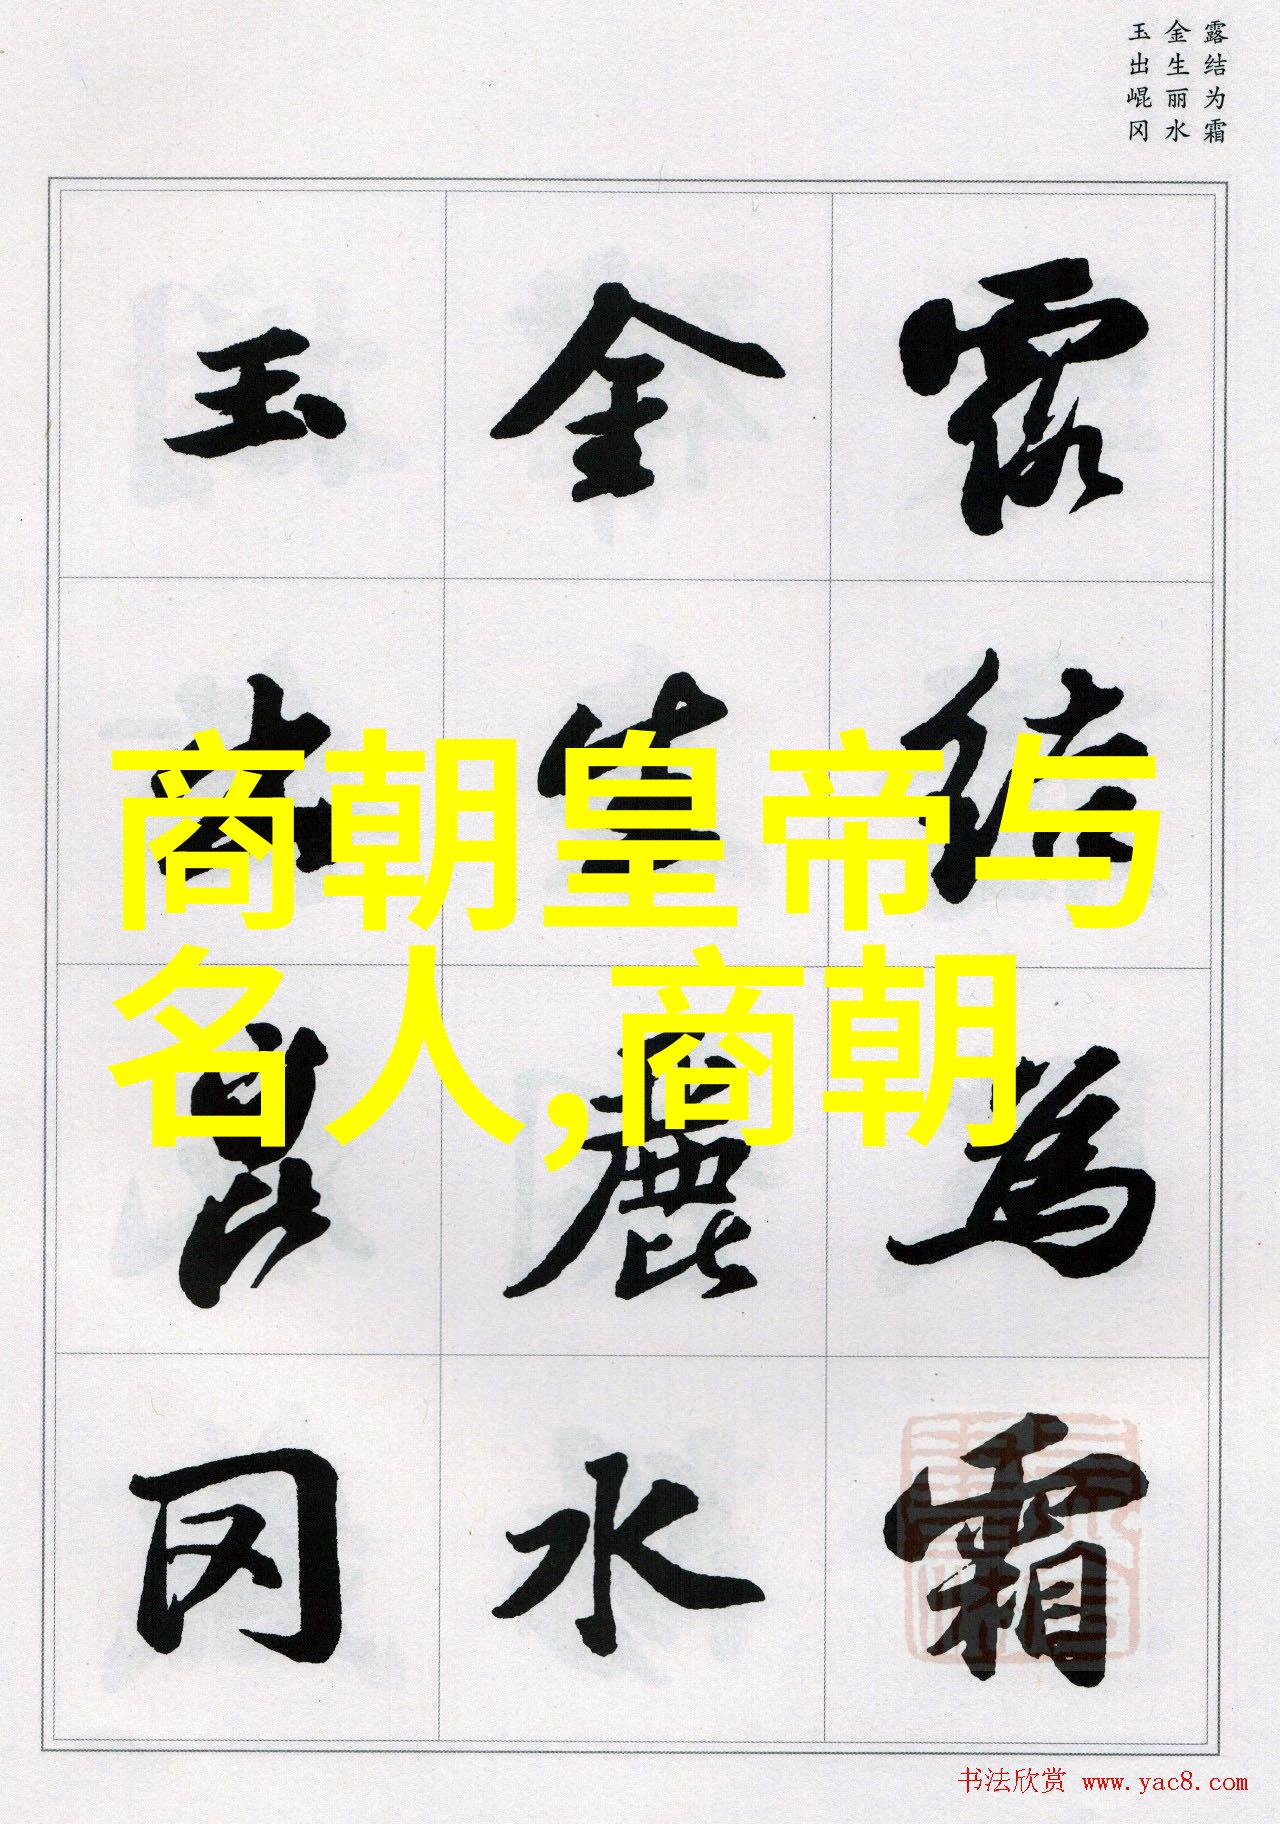 露结为霜
金生丽水
玉出崐冈
露結為霜
金生麗水
玉出崑冈
商朝皇帝与
名人,商朝
书法欣赏 www.yac8.com